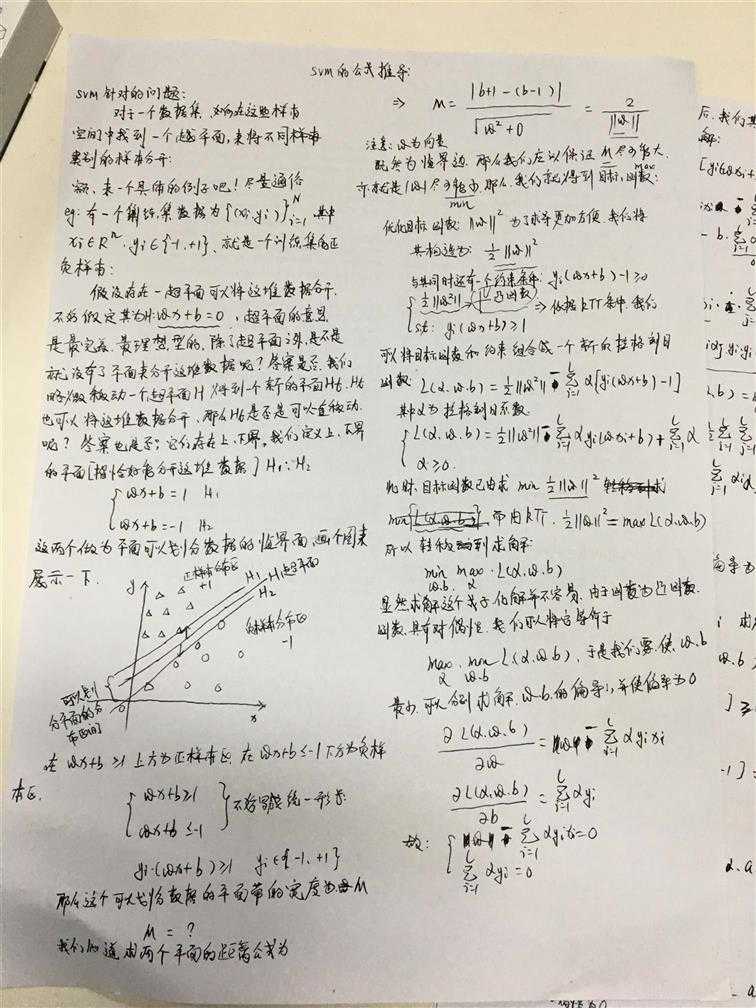 SVM的公式推导:
SVM针对的问题:
对于一个数据集,如何在这些样本
空间中找到一个超平面,来将不同样本
类别的样本分开:
额,来一个具体的例子吧!尽量通俗
eg:有一个训练集数据为{(xi,yi)}ᴺᵢ₌₁ 其中
xi∈Rⁿ,yi∈{-1,+1},就是一个训练集的正
负样本:
假设存在一超平面可以将这堆数据分开.
不妨假定其为H:ωx+b=0,超平面的意思
是最完美、最理想型的,除了超平面之外,是不是
就没有了平面来分开这堆数据呢?答案是否,我们
略微移动一个超平面H得到一个新的平面Ht,Ht
也可以将这堆数据分开,那么Ht是否是可以一直移动
呢?答案也是否;它们存在上、下界,我们定义上、下界
的平面[恰好能分开这堆数据]H₁、H₂
{ωx+b=1 H₁
ωx+b=-1 H₂
这两个做为平面可以划分数据的临界面,画个图来
展示一下.
y
正样本分布区
+1
H₁ H超平面
H₂
负样本分布区
-1
可以划
分平面的分
布区间
0
x
在ωx+b≥1上方为正样本区,在ωx+b≤-1下方为负样
本区.
{ωx+b≥1
ωx+b≤-1} 不妨写成统一形式:
yi·(ωx+b)≥1 yi∈{-1,+1}
那么这个可以划分数据的平面带的宽度为M
M=?
我们知道求两个平面的距离公式为
⇒ M=|b+1-(b-1)|/√(ω²+0) = 2/||ω||
注意:ω为向量
既然为临界边,那么我们应该保证M尽可能大,
max
亦就是|ω|尽可能小,那么我们就得到目标函数:
min
优化目标函数:||ω||² 为了求导更加方便,我们将
其构造为:½||ω||²
与其同时还有一个约束条件:yi(ωx+b)-1≥0
{½||ω²||→[凸函数]
st: yi(ωx+b)≥1 ⇒依据KTT条件,我们
可以将目标函数和约束组合成一个新的拉格朗日
函数:L(α,ω,b)=½||ω²||-∑ᴸᵢ₌₁α[yi(ωx+b)-1]
其中α为拉格朗日系数.
{L(α,ω,b)=½||ω²||-∑ᴸᵢ₌₁αyi(ωxi+b)+∑ᴸᵢ₌₁α
α≥0.
此时,目标函数已由求min ½||ω||²
而由KTT,½||ω||²=maxL(α,ω,b)
所以转移到求解:
min max L(α,ω,b)
ω.b α
显然求解这个式子化解并不容易,由于函数为凸函数,
函数具有对偶性,我们可以将它等价于
max min L(α,ω,b),于是我们要使ω,b
α ω.b
最小,可以分别求解ω、b的偏导,并使偏导为0
∂L(α,ω,b)/∂ω=||ω||-∑ᴸᵢ₌₁αyixi
∂L(α,ω,b)/∂b=∑ᴸᵢ₌₁αyi
故:{||ω||-∑ᴸᵢ₌₁αyixi=0
∑ᴸᵢ₌₁αyi=0